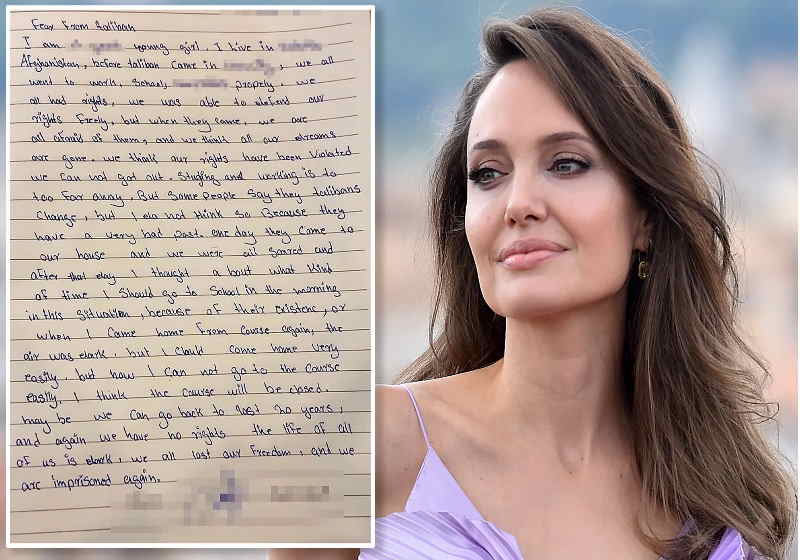 Fear From Taliban
I am young girl. I live in
Afghanistan, before taliban came in , we all
went to work, school, propely, we
all had rights, we was able to defend our
rights Freely, but when they came, we are
all afraid of them, and we think all our dreams
are gone. we think our rights have been Violated
we can not got out. Studying and working is to
too far away, But Some people say they talibans
Change, but I do not think so Because they
have a very bad past. one day they came to
our house and we were all scared and
after that day I thought a bout what kind
of time I should go to School in the morning
in this situation, because of their existenc, or
when I came home from course again, the
air was dark, but I could come home very
easily, but now I can not go to the course
easily. I think the course will be closed.
may be we can go back to last 20 years,
and again we have no rights the life of all
of us is dark, we all lost our Freedom, and we
are imprisoned again.